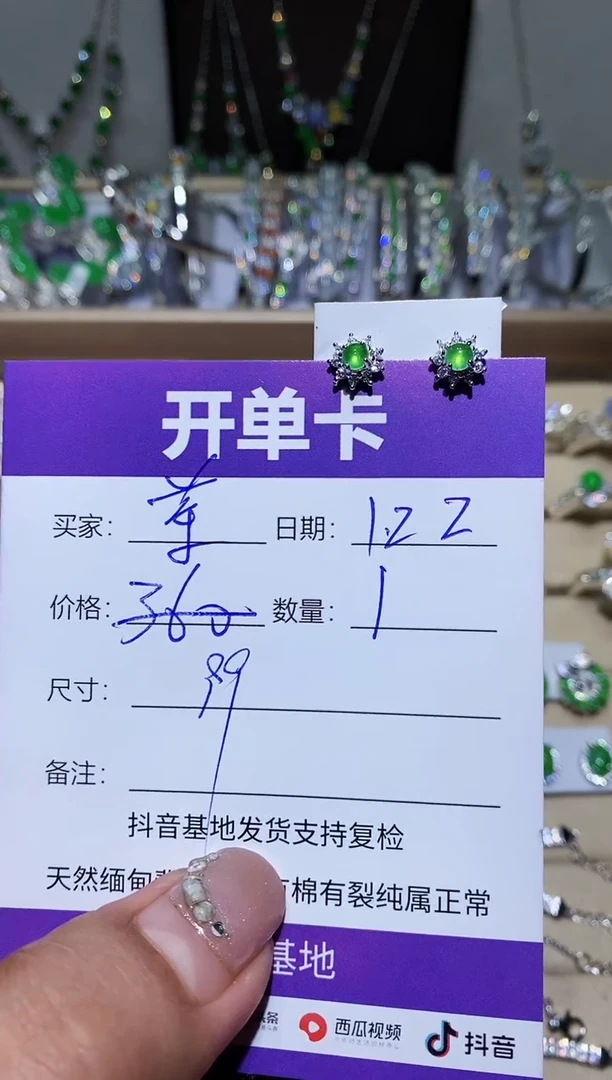 开单卡
买家： 日期：1.22
价格：360 数量：1
尺寸：99
备注：
抖音基地发货支持复检
天然缅甸 棉有裂纯属正常
基地
头条 西瓜视频 抖音